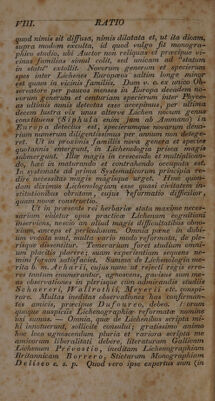 VIII. RATIO
quod nimis sit diffusa, nimis dilatata et, ut ita dicam,
supra modum exculta, id quod vulgo fit monogra-
phico studio, ubi Auctor non reliquas et praecipue vi-
cinas familias simul colit, sed unicam ad "statum
in statu" extollit. Novorum generum et specierum
spes inter Lichenes Europaeos saltim longe minor
est quam in vicinis familiis. Dum v. c. ex unico Ob-
servatore per paucos menses in Europa decadem no-
vorum generum et centuriam specierum inter Fungos
as ultimis annis detectas esse accepimus, per ultima
decem lustra vix unus alterve Lichen novum genus
constituens (Siphula enim jam ab Ammann) in
Europa detectus est, specierumque novarum dena-
rium numerum diligentissimus per annum non deteg-
ret. Ut in proximis familiis nova genera et species
quotannis emergunt, in Lichenologia prisca magis
submergunt. Illae magis in crescendo et multiplican-
do, hae in maturando et contrahendo occupata est.
In systemate ad prima Systematicorum principia re-
dire necessitas magis magisque urget. Hinc quon-
dam diximus Lichenologiam esse quasi civitatem in-
stitutionibus obrutam, cujus reformatio difficilior,
quam novae constructio.
Ut in praesenti rei herbariae statu maxime neces-
sarium videtur opus practico Lichenum cognitioni
inserviens, nescio an aliud magis difficultatibus obno-
xium, anceps et periculosum. Omnia paene in dubi-
um vocata sunt, multa vario modo reformata, de ple-
risque dissenitur. Temerarium foret studium omni-
um placitis placere; suam experientiam sequens ne-
mini forsan satisfaciet. Summa de Lichenologia me-
rita b. m. Acharii, cujus nunc ad rejecti regis erro-
res tantum enumerantur, agnoscens, gavisus sum me-
as observationes in plerisque cum admirandis studiis
Schaereri, Wallrothii, Meyeri etc. conspi-
rare. Multas ineditas observationes has confirman-
tes amicis, praecipue Dufoureo, debeo. Horum
quoque auspiciis Lichenographiae reformatae nomine
usi sumus. — Omnia, quae de Lichenibus scripta mi-
hi innotuerunt, sollicite consului; gratissimo animo
hoc loco agnoscendum pluria et rariora scripta me
amicorum liberalitati debere, literaturam Gallicam
Lichenum Prevostio, ineditam Lichenographiam
Britannicam Borrero, Stictarum Monographiam
Deliseo c. s. p. Quod vero ipse expertus sum (in